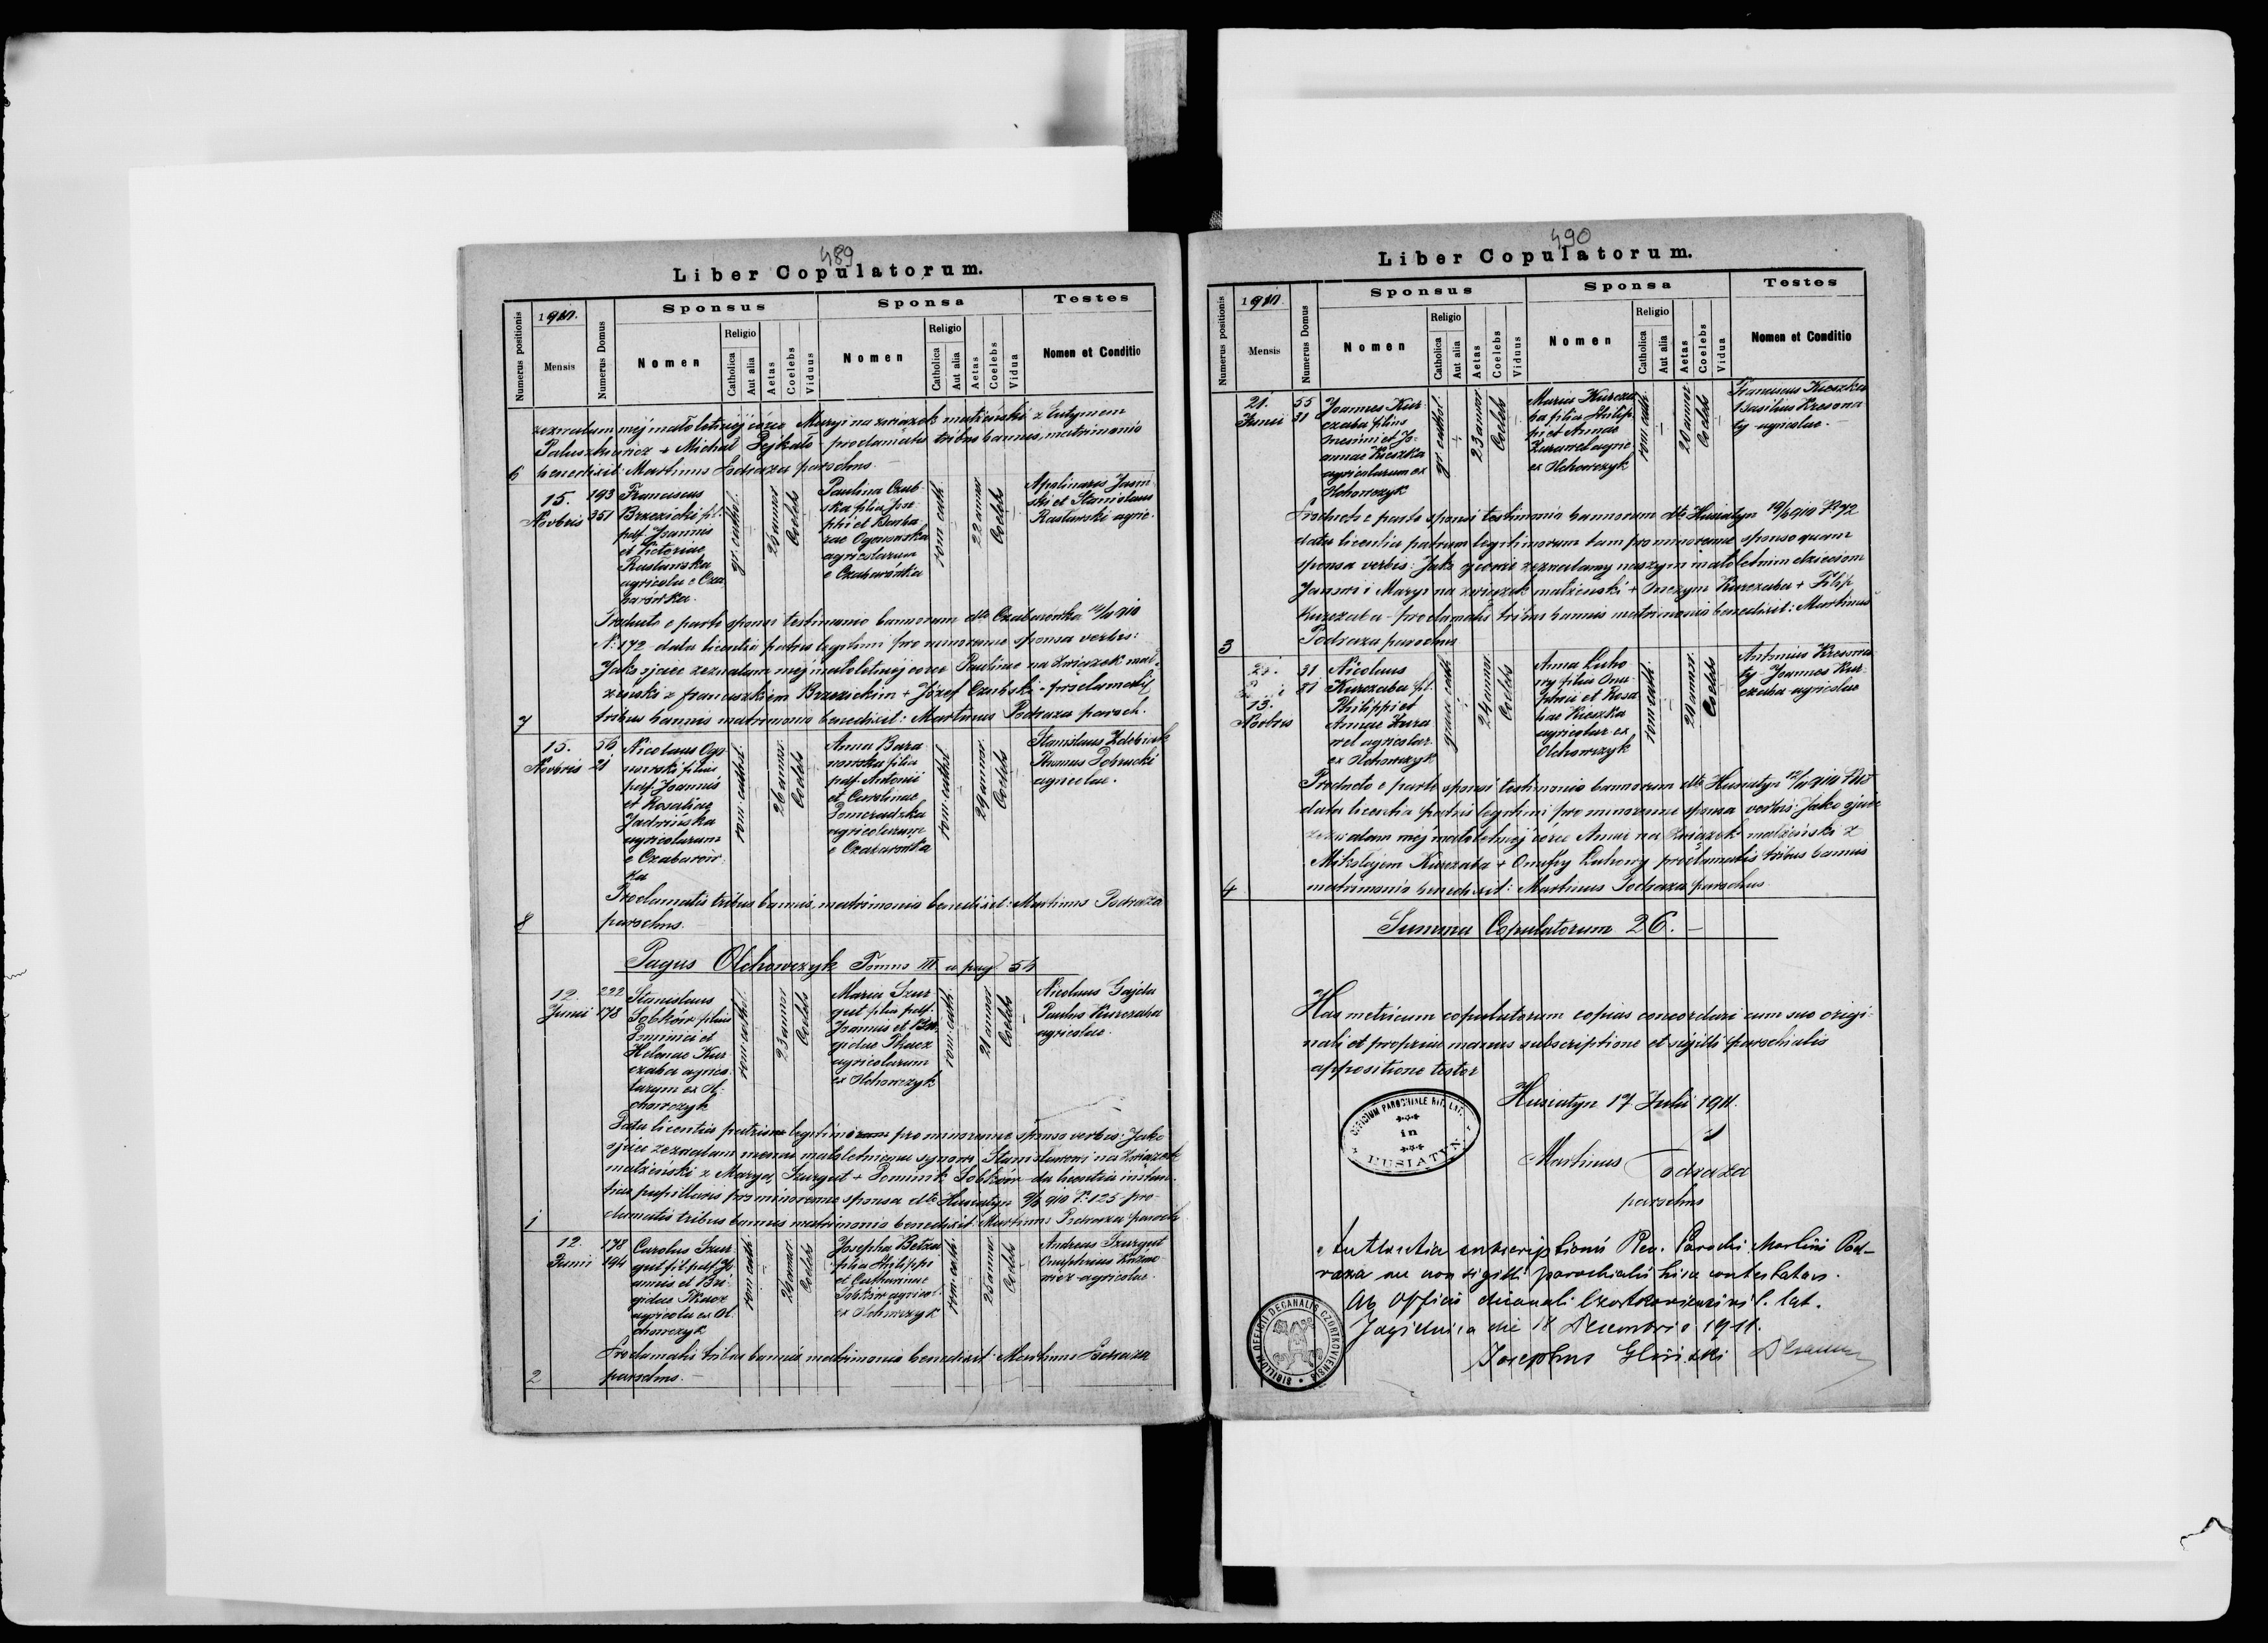 489
Liber Copulatorum.
Numerus positionis
1910.
Mensis
Numerus Domus
Sponsus
Nomen
Religio
Catholica
Aut alia
Aetas
Coelebs
Viduus
Sponsa
Nomen
Religio
Catholica
Aut alia
Aetas
Coelebs
Vidua
Testes
Nomen et Conditio
zeznalam mej małoletniej córce Maryi na związek małżeński z
Paluszkiewicz + Michał proclamatis tribus bannis, matrimonio
benedixit: Martinus Podraza parochus
6
15.
Novbris
193
351
Franciscus
Brzezicki fil.
pdf. Joannis
et Victoriae
Rasławska
agricola e Cza
barówka.
gr. cathol.
26 annor
Coelebs
Paulina Czub
ska filia Jose
phi et Barba
rae Ogonowska
agricolarum
e Czabarówka
rom. cath.
22 annor
Coelebs
Apolinaris Jasiń
ski et Stanislaus
Rasławski agric.
Producto e parte sponsi testimonio bannorum dto Czabarówka 14/11 910
N: 172 data licentia patris legitimi pro minorenne sponsa verbis:
Jako ojciec zeznalam mej małoletniej córce Paulinie na związek mał-
żeński z Franciszkiem Brzezickim + Józef Czubski - proclamatis
tribus bannis matrimonio benedixit: Martinus Podraza paroch.
7
15.
Novbris
56
21
Nicolaus Ogo
nowski filius
pdf. Joannis
et Rosaliae
Jadwińska
agricolarum
e Czabarów
ka
rom. cathol
26 annor.
Coelebs
Anna Bara
nowska filia
pdf. Antonii
et Carolinae
Pomeradzka
agricolarum
e Czabarówka
rom. cathol
24 annor.
Coelebs
Stanislaus
Thomas Dobrucki
agricolae.
Proclamatis tribus bannis, matrimonio benedixit: Martinus Podraza
parochus.
8
Pagus Olchowczyk Tomus III a pag. 54
12.
Junii
222
178
Stanislaus
Sobków filius
Dominici et
Helenae Kur
czaba agrico
larum ex Ol-
chowczyk
rom. cathol.
23 annor
Coelebs
Maria Szur
gut filia pdf.
Joannis et Bri
gidae Tkacz
agricolarum
ex Olchowczyk
rom. cath.
21 annor
Coelebs
Nicolaus Gajda
Paulus Kurczaba
agricolae.
Data licentia patris legitimi pro minorenne sponso verbis: Jako
ojciec zeznalam memu małoletniemu synowi Stanisławowi na związek
małżeński z Maryą Szurgut + Dominik Sobków - da licentia instan-
tiae pupillaris pro minorenne sponsa dto Husiatyn 9/6 910 P. 125 pro-
clamatis tribus bannis matrimonio benedixit: Martinus Podraza paroch
1
12.
Junii
178
194
Carolus Szur
gut fil. pdf. Jo
annis et Bri
gidae Tkacz
agricola ex Ol
chowczyk
rom. cath.
26 annor.
Coelebs
Josepha Betza
filia Philippi
et Catharinae
Sobków agricol.
ex Olchowczyk
rom. cath.
25 annor.
Coelebs
Andreas Szurgut
Onuphrius
agricolae.
Proclamatis tribus bannis matrimonio benedixit: Martinus Podraza
parochus.
2
490
Liber Copulatorum.
Numerus positionis
1910.
Mensis
Numerus Domus
Sponsus
Nomen
Religio
Catholica
Aut alia
Aetas
Coelebs
Viduus
Sponsa
Nomen
Religio
Catholica
Aut alia
Aetas
Coelebs
Vidua
Testes
Nomen et Conditio
21.
Junii
55
31
Joannes Kur-
czaba filius
Onesimi et Jo-
annae Kieszka
agricolarum ex
Olchowczyk
gr. cathol.
23 annor
Coelebs
Maria Kurcza
ba filia Philip
pi et Annae
Żurawel agric.
ex Olchowczyk
rom. cath.
20 annor
Coelebs
Franciscus Kieszka
Basilius Kresowa
ty agricolae.
Producto e parte sponsi testimonio bannorum dto Husiatyn 19/6 910 P. 72
data licentia patrum legitimorum tam pro minorenne sponso quam
sponsa verbis: Jako ojcowie zeznalamy naszym małoletnim dzieciom
Janowi i Maryi na związek małżeński + Onezym Kurczaba + Filip
Kurczaba - proclamatis tribus bannis matrimonio benedixit: Martinus
Podraza parochus
3
13.
Novbris
31
81
Nicolaus
Kurczaba fil.
Philippi et
Annae Żura
wel agricolar.
ex Olchowczyk
graeci cath.
24 annor.
Coelebs
Anna Luho
wy filia Onu-
phrii et Rosa
liae Kieszka
agricolar. ex
Olchowczyk
rom. cath.
20 annor.
Coelebs
Antonius Kresowa
ty Joannes Kur-
czaba agricolae
Producto e parte sponsi testimonio bannorum dto Husiatyn 12/11 910
data licentia patris legitimi pro minorenne sponsa verbis: Jako ojciec
zeznalam mej małoletniej córce Annie na związek małżeński z
Mikołajem Kurczaba + Onufry Luhowy proclamatis tribus bannis
matrimonio benedixit: Martinus Podraza parochus
4
Summa Copulatorum 26. -
Has metricum copulatorum copias concordari cum suo origi-
nali et propriae manus subscriptione et sigilli parochialis
appositione testor
Husiatyn 17 Julii 1911.
OFFICIUM PAROCHIALE RIT. LAT.
in
HUSIATYN
Martinus Podraza
parochus
Authentia subscriptionis Rev. Parochi Martini Pod-
raza nec non sigilli parochialis hisce contestatur.
Ab Officio decanali Czortkoviensi r. l. lat.
Jagielnica die 18 Decembris 1911.
SIGILLUM OFFICII DECANALIS CZORTKOVIENSIS
Josephus